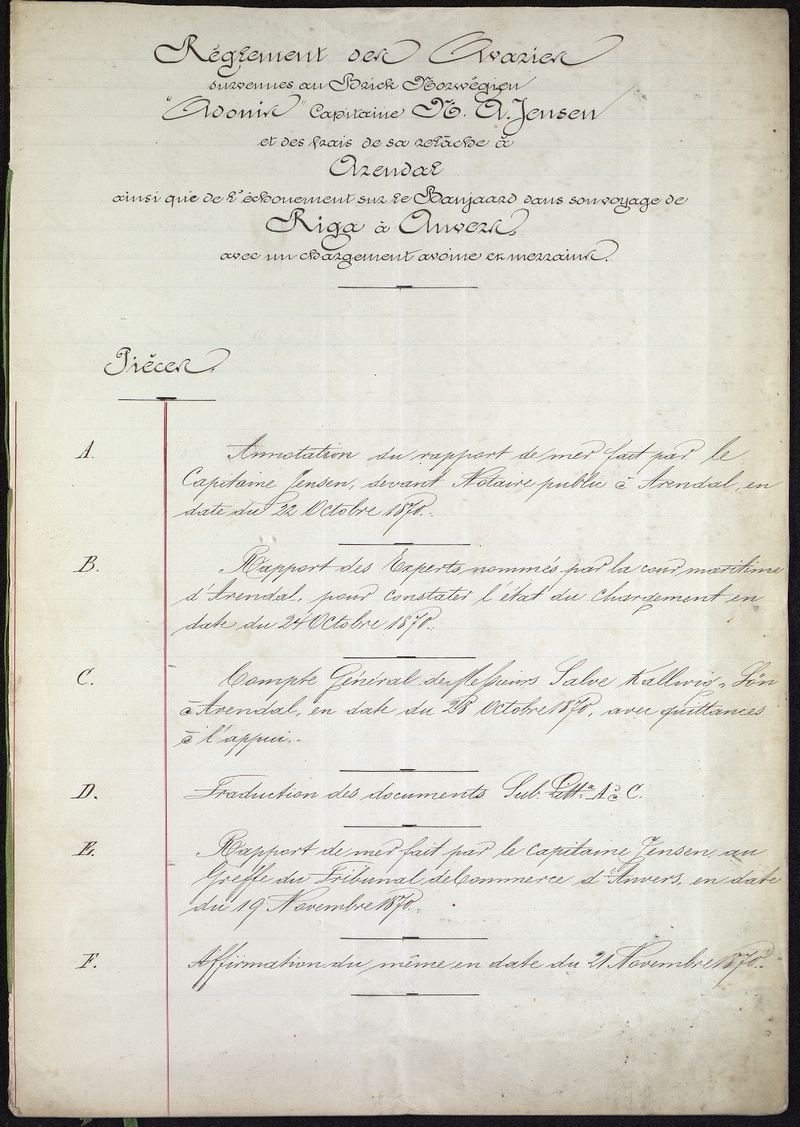 Réglement des Avaries
survenues au Brick Norwégien
"Adonis" Capitaine N. A. Jensen
et des frais de sa relâche à
Arendal
ainsi que de l'échouement sur le Banjaard dans son voyage de
Riga à Anvers,
avec un chargement avoine et merrains.
Pièces.
A. Annotation du rapport de mer fait par le
Capitaine Jensen, devant Notaire public à Arendal, en
date du 22 Octobre 1870.
B. Rapport des Experts nommés par la cour maritime
d'Arendal, pour constater l'état du chargement en
date du 24 Octobre 1870.
C. Compte Général de Messieurs Salve Kallevig & Sön
à Arendal, en date du 28 Octobre 1870, avec quittances
à l'appui.-
D. Traduction des documents Sub. Litt.ª A à C.
E. Rapport de mer fait par le Capitaine Jensen, au
Greffe du Tribunal de Commerce d'Anvers, en date
du 19 Novembre 1870.
F. Affirmation du même en date du 21 Novembre 1870.